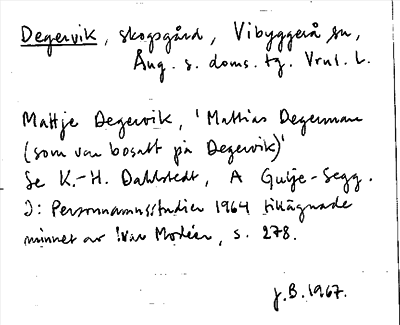 Degervik, skogsgård, Vibyggerå sn,
Ång. s. doms. tg. Vrnl. L.
Mattje Degervik, 'Mathias Degerman
(som var bosatt på Degervik)'
Se K.-H. Dahlstedt, A Gulje-Segg.
I: Personnamnsstudier 1964 tillägnade
minnet av Ivar Modéer, s. 278.
J.B. 1967.